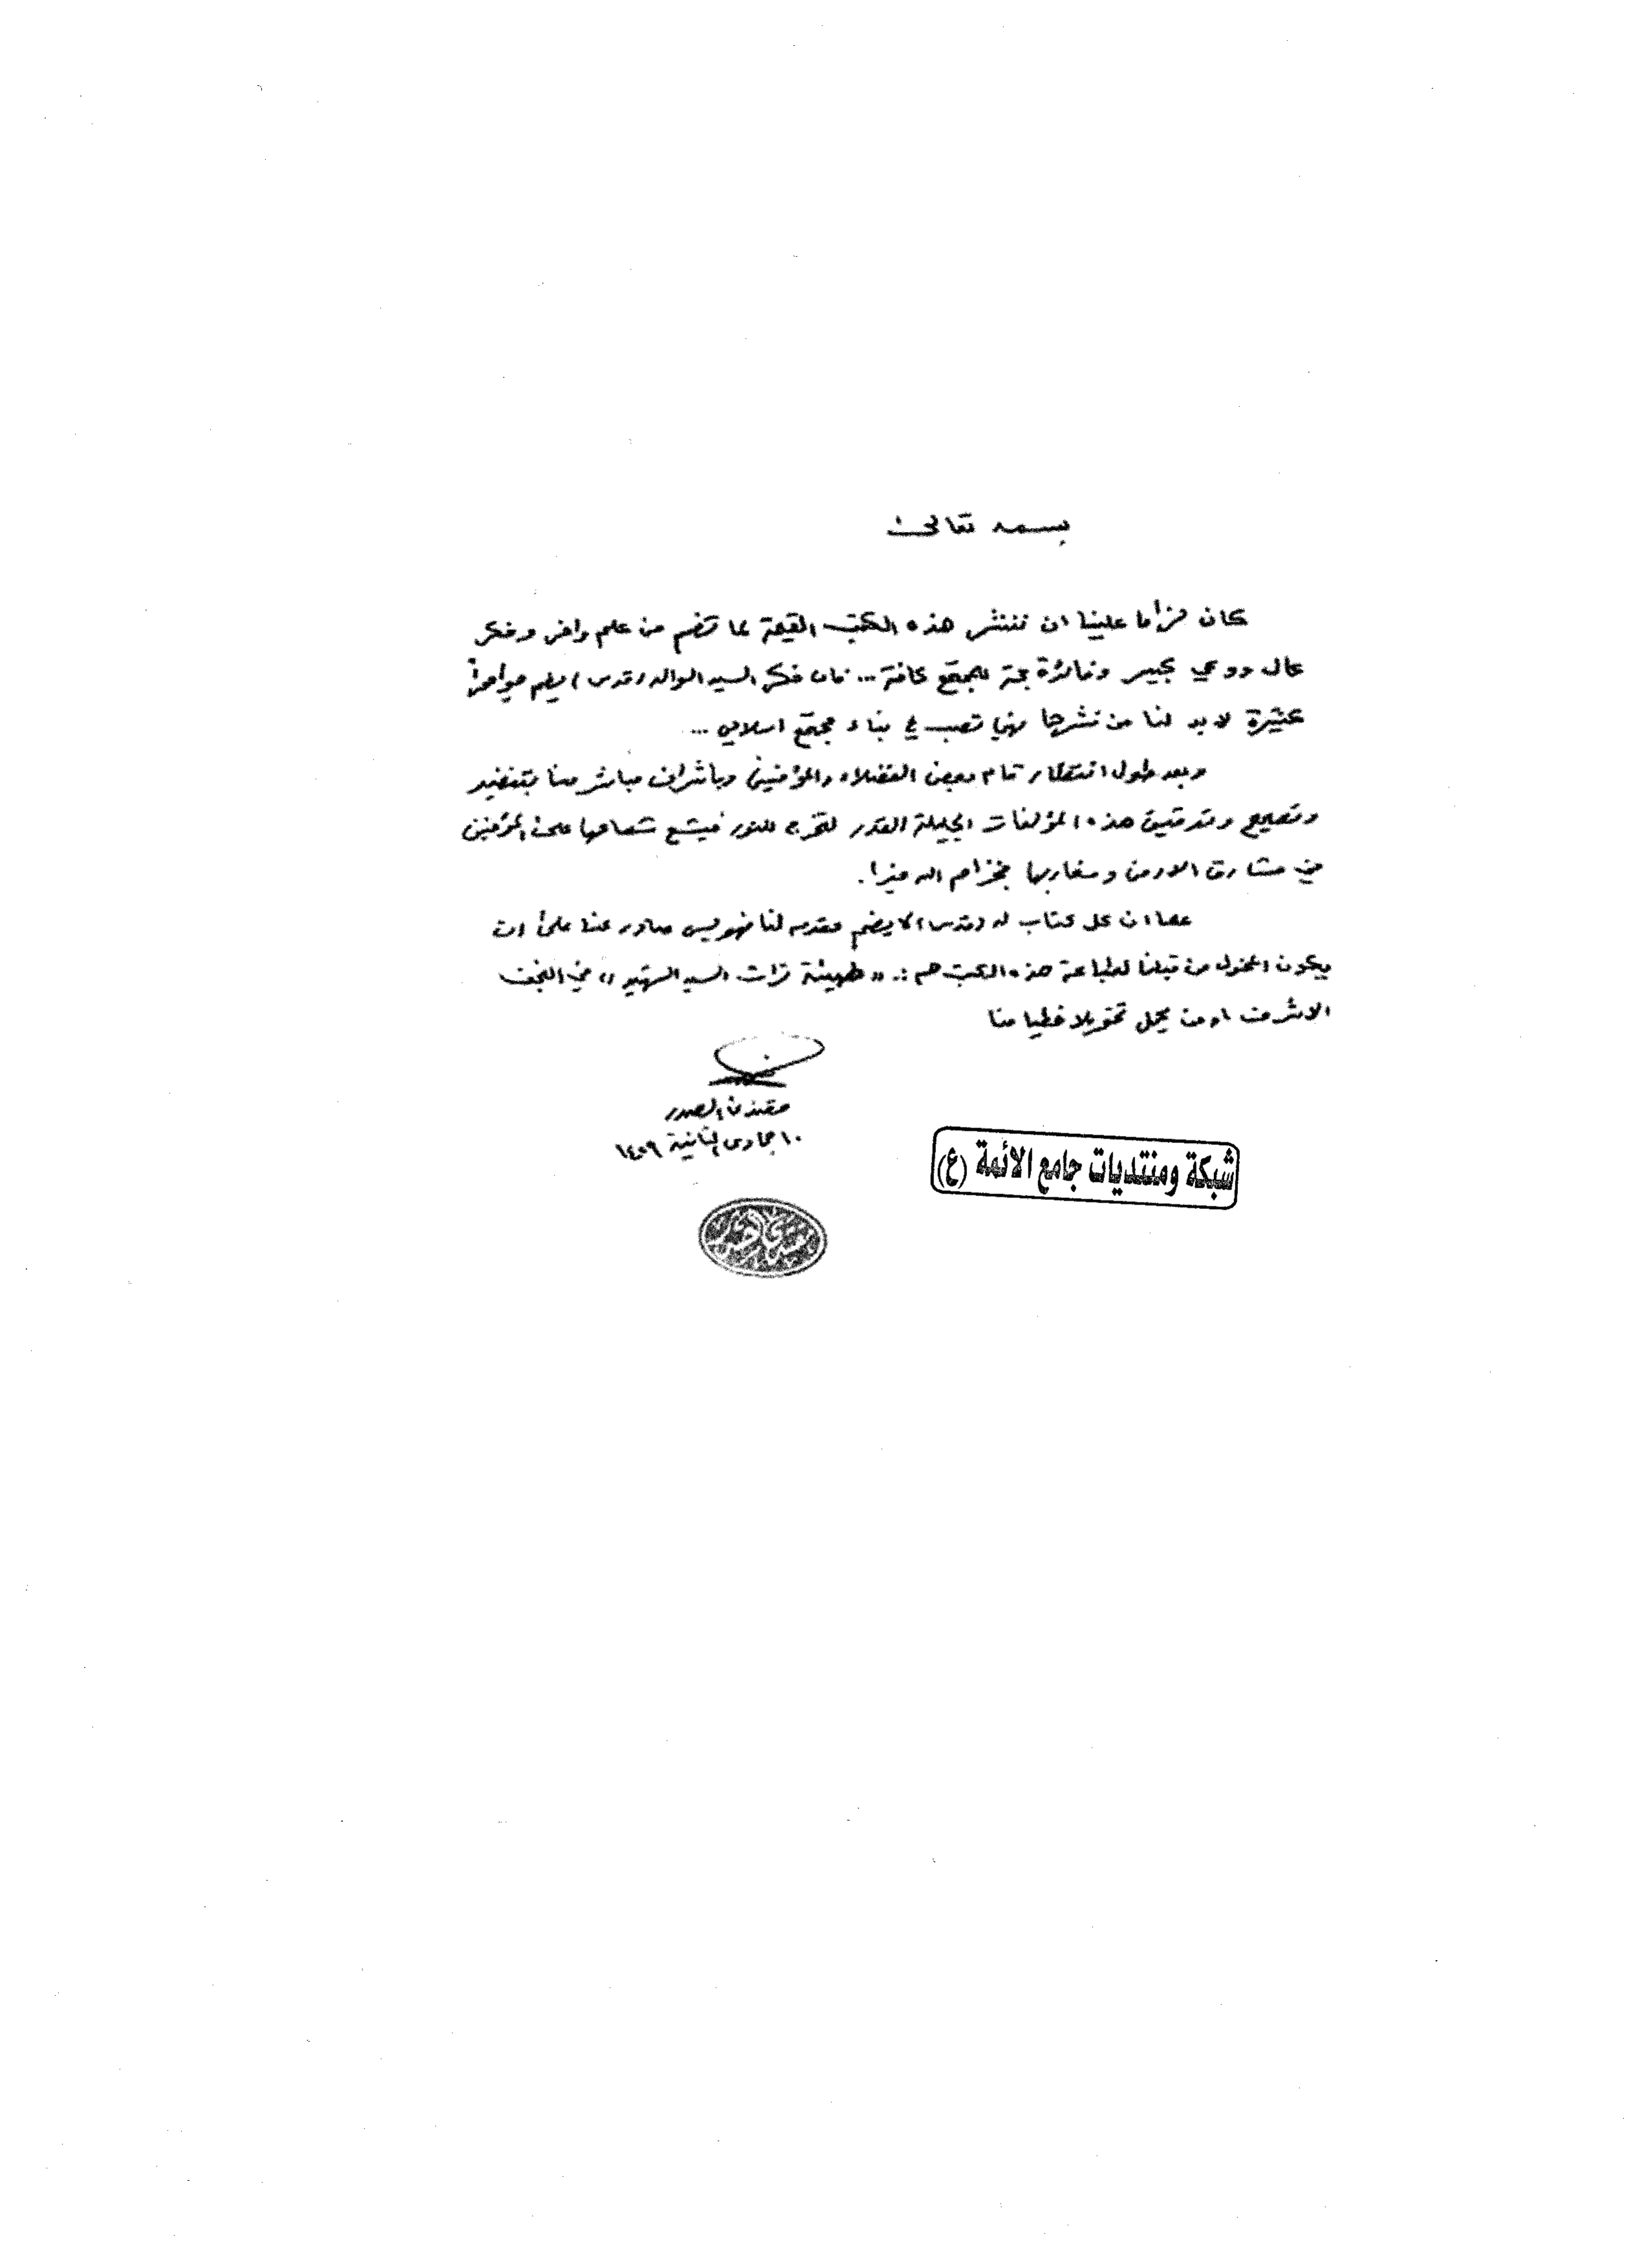 بسمه تعالى
كان لزاما علينا ان ننشر هذه الكتب القيمة لما تضم من علم وافر وفكر
عال ووعي كبير وفائدة جمة للمجتمع كافة ... فان فكر السيد الوالد (قدس) يضم مواضيعاً
كثيرة لا بد لنا من نشرها فهي تصب في بناء مجتمع اسلامي ...
وبعد طول انتظار قام بعض الفضلاء والمؤمنين وباشراف مباشر منا بتنضيد
وتصحيح وتدقيق هذه المؤلفات الجليلة القدر لتخرج للنور فيشع شعاعها على المؤمنين
في مشارق الارض ومغاربها فجزاهم الله خيرا.
كما ان كل كتاب له (قدس) لا يضم مقدمه لنا فهو ليس صادر عنا على ان
يكون المخول من قبلنا لطباعة هذه الكتب هم :. «هيئة تراث السيد الشهيد» في النجف
الاشرف او من يحمل تخويلا خطيا منا
مقتدى الصدر
١٠ جمادى الثانية ١٤٢٩
شبكة ومنتديات جامع الائمة (ع)